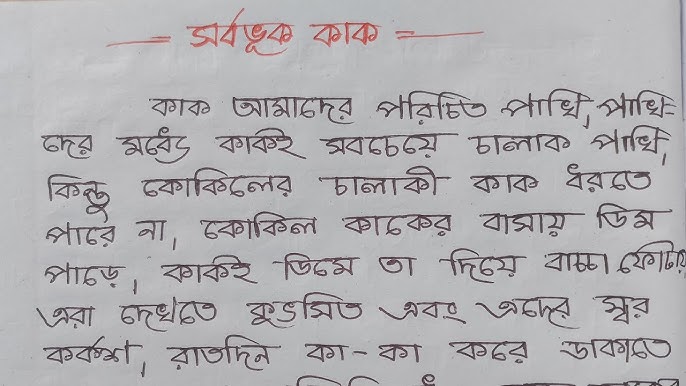 সর্বভূক কাক
কাক আমাদের পরিচিত পাখি, পাখি-
দের মধ্যে কাকই সবচেয়ে চালাক পাখি,
কিন্তু কোকিলের চালাকী কাক ধরতে
পারে না, কোকিল কাকের বাসায় ডিম
পাড়ে, কাকই ডিমে তা দিয়ে বাচ্চা ফোটায়
এরা দেখতে কুৎসিত এবং এদের স্বর
কর্কশ, রাতদিন কা-কা করে ডাকাতে